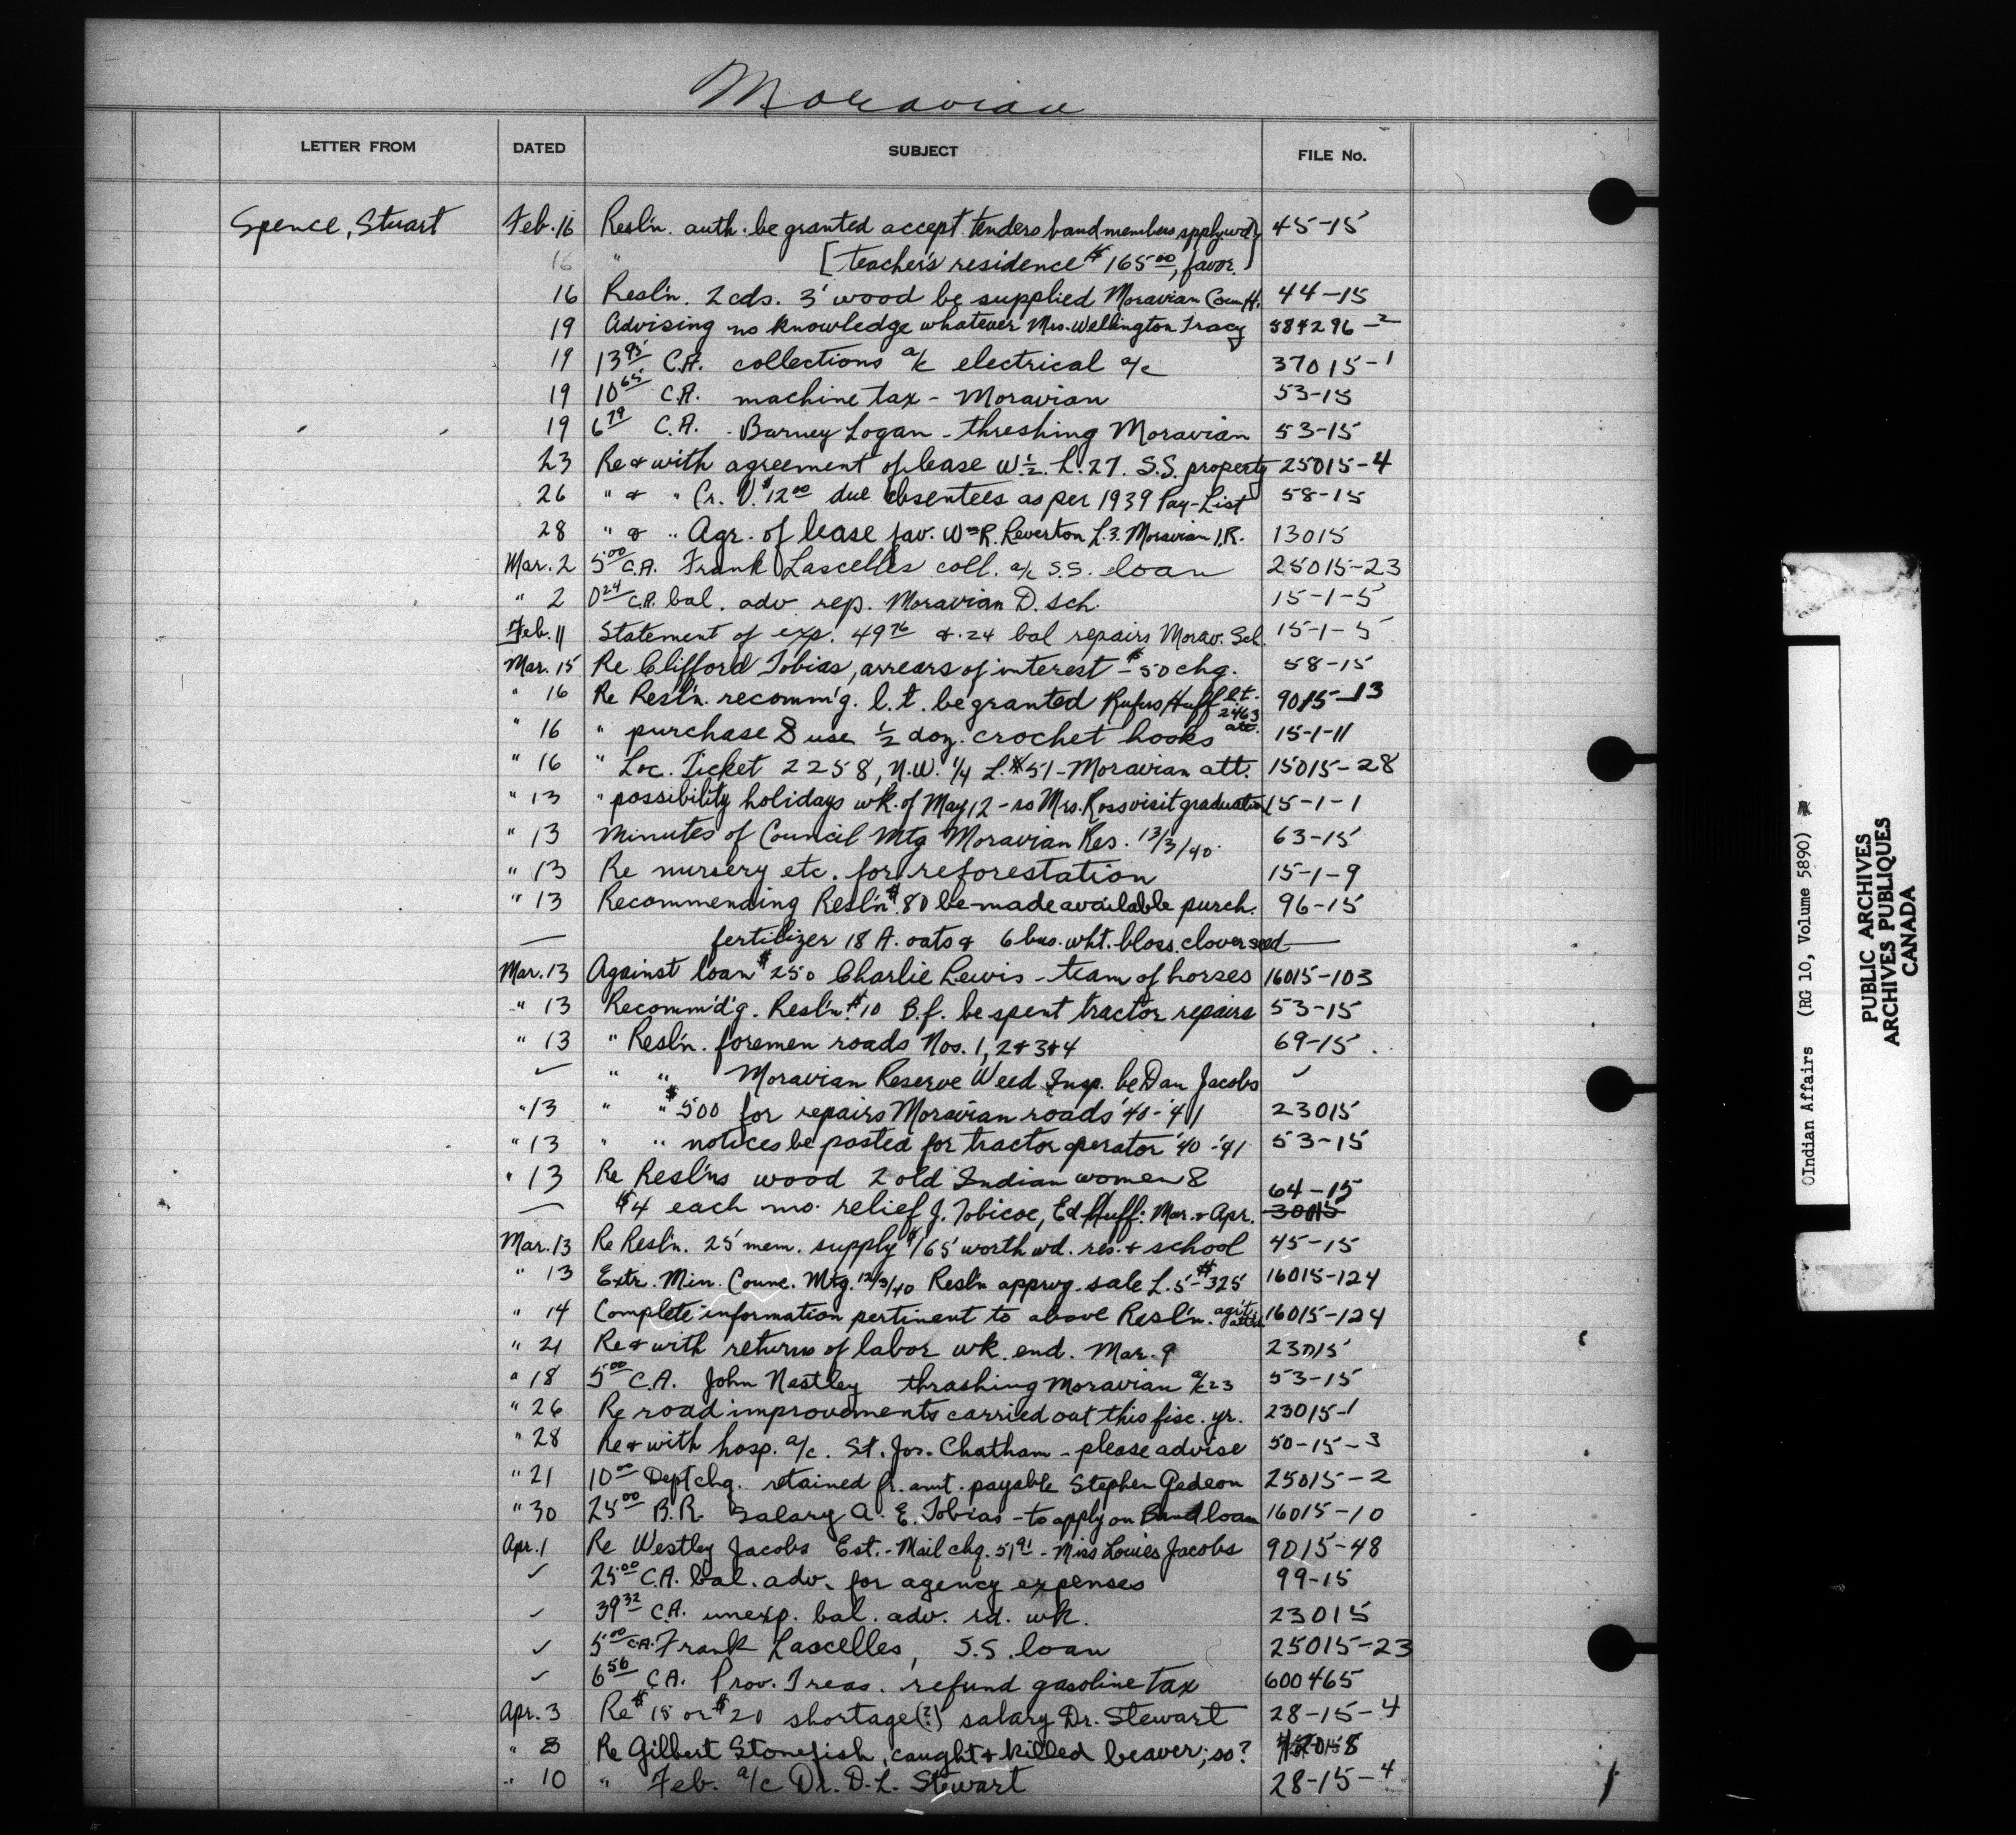 Moravian
LETTER FROM DATED SUBJECT FILE No.
Spence, Stuart Feb. 16 Resl'n. auth. be granted accept tenders band members spply. wd. 45-15
16 " [teacher's residence $165.00, favor.]
16 Resl'n. 2 cds. 3' wood be supplied Moravian Coun H. 44-15
19 Advising no knowledge whatever Mrs. Wellington Tracy 584296-2
19 13.95 C.A. collections a/c electrical a/c 37015-1
19 10.65 C.A. machine tax - Moravian 53-15
19 6.79 C.A. - Barney Logan - threshing Moravian 53-15
23 Re & with agreement of lease W.½. L.27. S.S. property 25015-4
26 " & " Cr. V. $12.00 due absentees as per 1939 Pay-List 58-15
28 " & " Agr. of lease fav. Wm R. Leverton L.3. Moravian I.R. 13015
Mar. 2 5.00 C.A. Frank Lascelles coll. a/c S.S. loan 25015-23
" 2 0.24 C.A. bal. adv. rep. Moravian D. Sch. 15-1-5
Feb. 11 Statement of exp. 49.76 & .24 bal repairs Morav. Sch. 15-1-5
Mar. 15 Re Clifford Tobias, arrears of interest - $50 chq. 58-15
" 16 Re Resl'n. recomm'g. l.t. be granted Rufus Huff l.t. 2463 att. 9015-13
" 16 " purchase & use ½ doz. crochet hooks 15-1-11
" 16 " Loc. Ticket 2258, N.W. ¼ L. 51 - Moravian att. 15015-28
" 13 " possibility holidays wk. of May 12 - so Mrs. Ross visit graduation 15-1-1
" 13 Minutes of Council Mtg Moravian Res. 13/3/40. 63-15
" 13 Re nursery etc. for reforestation 15-1-9
" 13 Recommending Resl'n $80 be made available purch. 96-15
— fertilizer 18 A. oats & 6 bus. wht. bloss clover seed —
Mar. 13 Against loan $250 Charlie Lewis - team of horses 16015-103
" 13 Recomm'd'g. Resl'n. $10 B.f. be spent tractor repairs 53-15
" 13 " Resl'n. foremen roads Nos. 1, 2 & 3 & 4 69-15
✓ " " Moravian Reserve Weed Insp. be Dan Jacobs ✓
" 13 " " $500 for repairs Moravian roads '40-'41 23015
" 13 " " notices be posted for tractor operator '40-'41 53-15
" 13 Re Resl'ns wood 2 old Indian women & 64-15
— $4 each mo. relief J. Tobicoe, Ed Huff: Mar. & Apr. 30015
Mar. 13 Re Resl'n. 25 mem. supply $165 worth wd. res. & school 45-15
" 13 Extr. Min. Counc. Mtg. 12/3/40 Resl'n apprvg. sale L. 5 - $325 16015-124
" 14 Complete information pertinent to above Resl'n. agr't attd. 16015-124
" 21 Re & with returns of labor wk. end. Mar. 9 23015
" 18 5.00 C.A. John Nastley thrashing Moravian a/c 23 53-15
" 26 Re road improvements carried out this fisc. yr. 23015-1
" 28 Re & with hosp. a/c. St. Jos. Chatham - please advise 50-15-3
" 21 10.00 Dept chq. retained fr. amt. payable Stephen Gedeon 25015-2
" 30 25.00 B.R. Salary A. E. Tobias - to apply on Band loan 16015-10
Apr. 1 Re Westley Jacobs Est. - Mail chq. 51.91 - Miss Louies Jacobs 9015-48
✓ 25.00 C.A. bal. adv. for agency expenses 99-15
✓ 39.32 C.A. unexp. bal. adv. rd. wk. 23015
✓ 5.00 C.A. Frank Lascelles, S.S. loan 25015-23
✓ 6.56 C.A. Prov. Treas. refund gasoline tax 600465
Apr. 3 Re $15 or $20 shortage(?) salary Dr. Stewart 28-15-4
" 8 Re Gilbert Stonefish, caught & killed beaver; so?
" 10 " Feb. a/c Dr. D. L. Stewart 28-15-4
OIndian Affairs (RG 10, Volume 5890)
PUBLIC ARCHIVES
ARCHIVES PUBLIQUES
CANADA